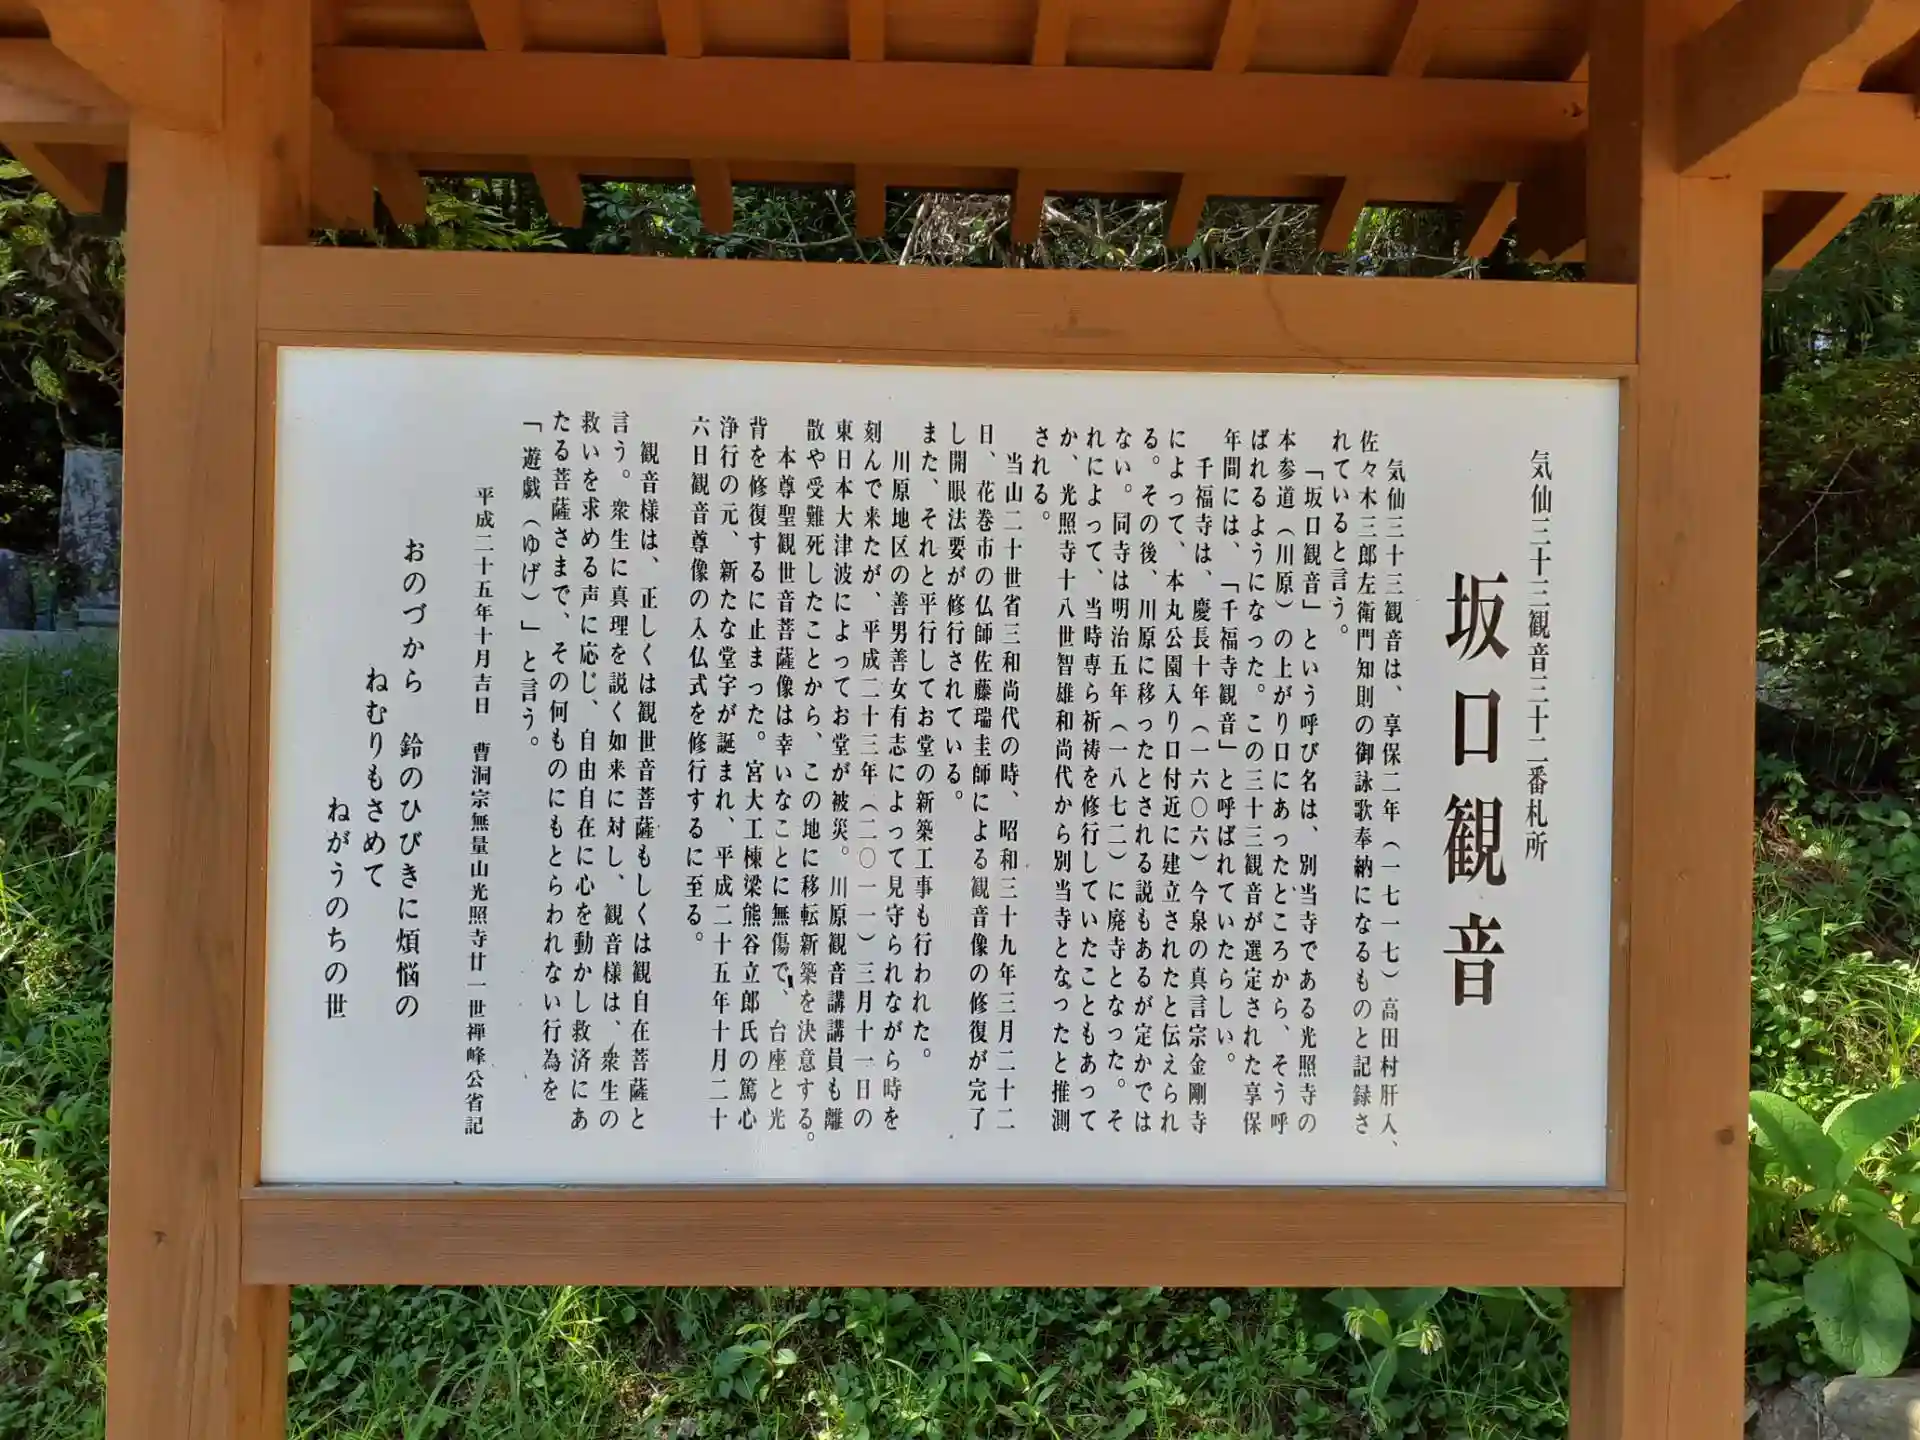 気仙三十三観音三十二番札所
坂口観音
気仙三十三観音は、享保二年（一七一七）高田村肝入、
佐々木三郎左衛門知則の御詠歌奉納になるものと記録さ
れていると言う。
「坂口観音」という呼び名は、別当寺である光照寺の
本参道（川原）の上がり口にあったところから、そう呼
ばれるようになった。この三十三観音が選定された享保
年間には、「千福寺観音」と呼ばれていたらしい。
千福寺は、慶長十年（一六〇六）今泉の真言宗金剛寺
によって、本丸公園入り口付近に建立されたと伝えられ
る。その後、川原に移ったとされる説もあるが定かでは
ない。同寺は明治五年（一八七二）に廃寺となった。そ
れによって、当時専ら祈祷を修行していたこともあって
か、光照寺十八世智雄和尚代から別当寺となったと推測
される。
当山二十世省三和尚代の時、昭和三十九年三月二十二
日、花巻市の仏師佐藤瑞圭師による観音像の修復が完了
し開眼法要が修行されている。
また、それと平行してお堂の新築工事も行われた。
川原地区の善男善女有志によって見守られながら時を
刻んで来たが、平成二十三年（二〇一一）三月十一日の
東日本大津波によってお堂が被災。川原観音講講員も離
散や受難死したことから、この地に移転新築を決意する。
本尊聖観世音菩薩像は幸いなことに無傷で、台座と光
背を修復するに止まった。宮大工棟梁熊谷立郎氏の篤心
浄行の元、新たな堂宇が誕まれ、平成二十五年十月二十
六日観音尊像の入仏式を修行するに至る。
観音様は、正しくは観世音菩薩もしくは観自在菩薩と
言う。衆生に真理を説く如来に対し、観音様は、衆生の
救いを求める声に応じ、自由自在に心を動かし救済にあ
たる菩薩さまで、その何ものにもとらわれない行為を
「遊戯（ゆげ）」と言う。
平成二十五年十月吉日　曹洞宗無量山光照寺廿一世禅峰公省記
おのづから　鈴のひびきに煩悩の
ねむりもさめて
ねがうのちの世